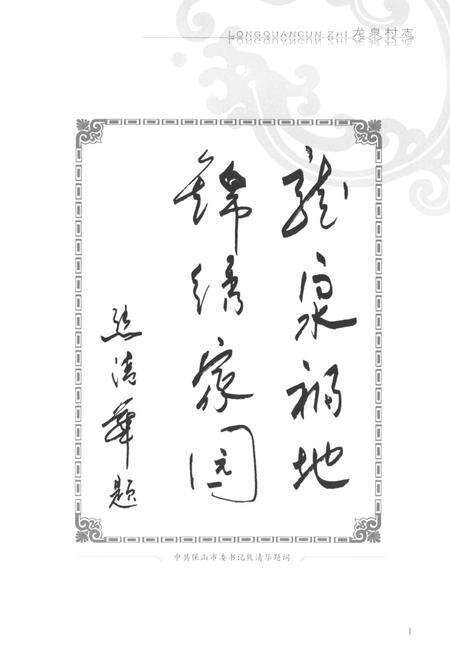 LONGQUANCUN ZHI 龙泉村志
龍泉福地
锦绣家园
熊清華題
中共保山市委书记熊清华题词
1